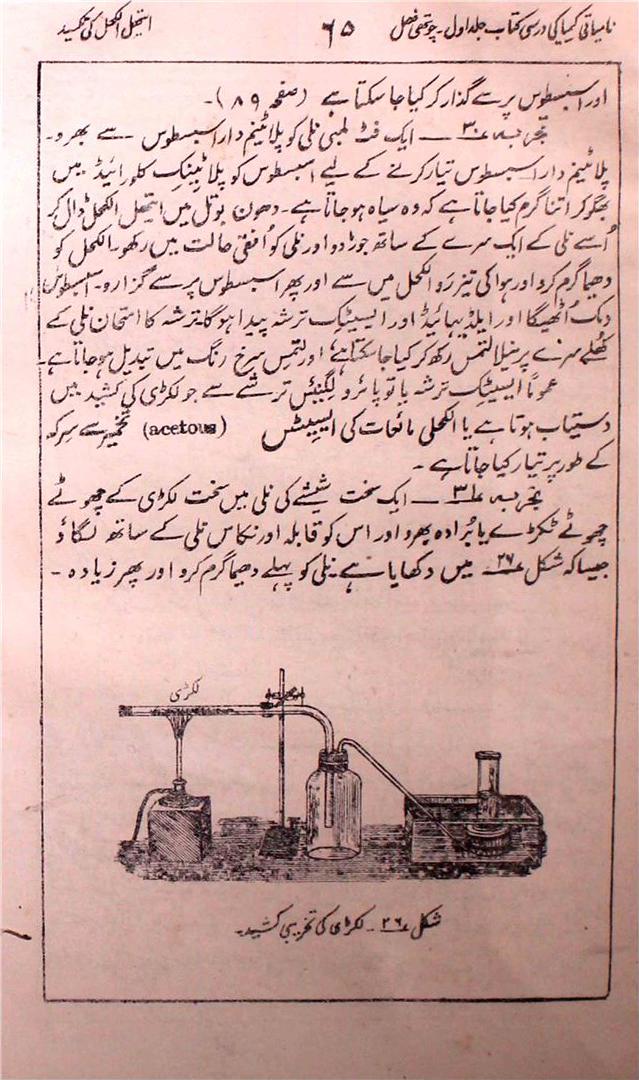 نامیاتی کیمیا کی درسی کتاب جلد اول۔ چوتھی فصل ۶۵ ایتھل الکحل کی تکسید
اور اسبسطوس پر سے گذار کر کیا جا سکتا ہے (صفحہ ۸۹)۔
تجربہ ۳۰ ــ ایک فٹ لمبی نلی کو پلاٹینم دار اسبسطوس سے بھرو۔
پلاٹینم دار اسبسطوس تیار کرنے کے لیے اسبسطوس کو پلاٹینک کلورائیڈ میں
بھگو کر اتنا گرم کیا جاتا ہے کہ وہ سیاہ ہو جاتا ہے۔ دھون بوتل میں ایتھل الکحل ڈال کر
اُسے نلی کے ایک سرے کے ساتھ جوڑ دو اور نلی کو اُفقی حالت میں رکھو۔ الکحل کو
دھیما گرم کرو اور ہوا کی تیز رَو الکحل میں سے اور پھر اسبسطوس پر سے گزارو۔ اسبسطوس
دمک اُٹھیگا اور ایلڈیہائیڈ اور ایسیٹک ترشہ پیدا ہوگا۔ ترشہ کا امتحان نلی کے
کُھلے سرے پر نیلا لتمس رکھ کر کیا جا سکتا ہے، اور لتمس سرخ رنگ میں تبدیل ہو جاتا ہے۔
عموماً ایسیٹک ترشہ یا تو پائرولگنیئس ترشے سے جو لکڑی کی کشید میں
دستیاب ہوتا ہے یا الکحلی مائعات کی ایسیٹس (acetous) تخمیر سے سرکہ
کے طور پر تیار کیا جاتا ہے۔
تجربہ ۳۱ ــ ایک سخت شیشے کی نلی میں سخت لکڑی کے چھوٹے
چھوٹے ٹکڑے یا بُرادہ بھرو اور اس کو قابلہ اور نکاس نلی کے ساتھ لگاؤ
جیسا کہ شکل ۲۶ میں دکھایا ہے۔ نلی کو پہلے دھیما گرم کرو اور پھر زیادہ۔
لکڑی
شکل ۲۶۔ لکڑی کی تخریبی کشید۔